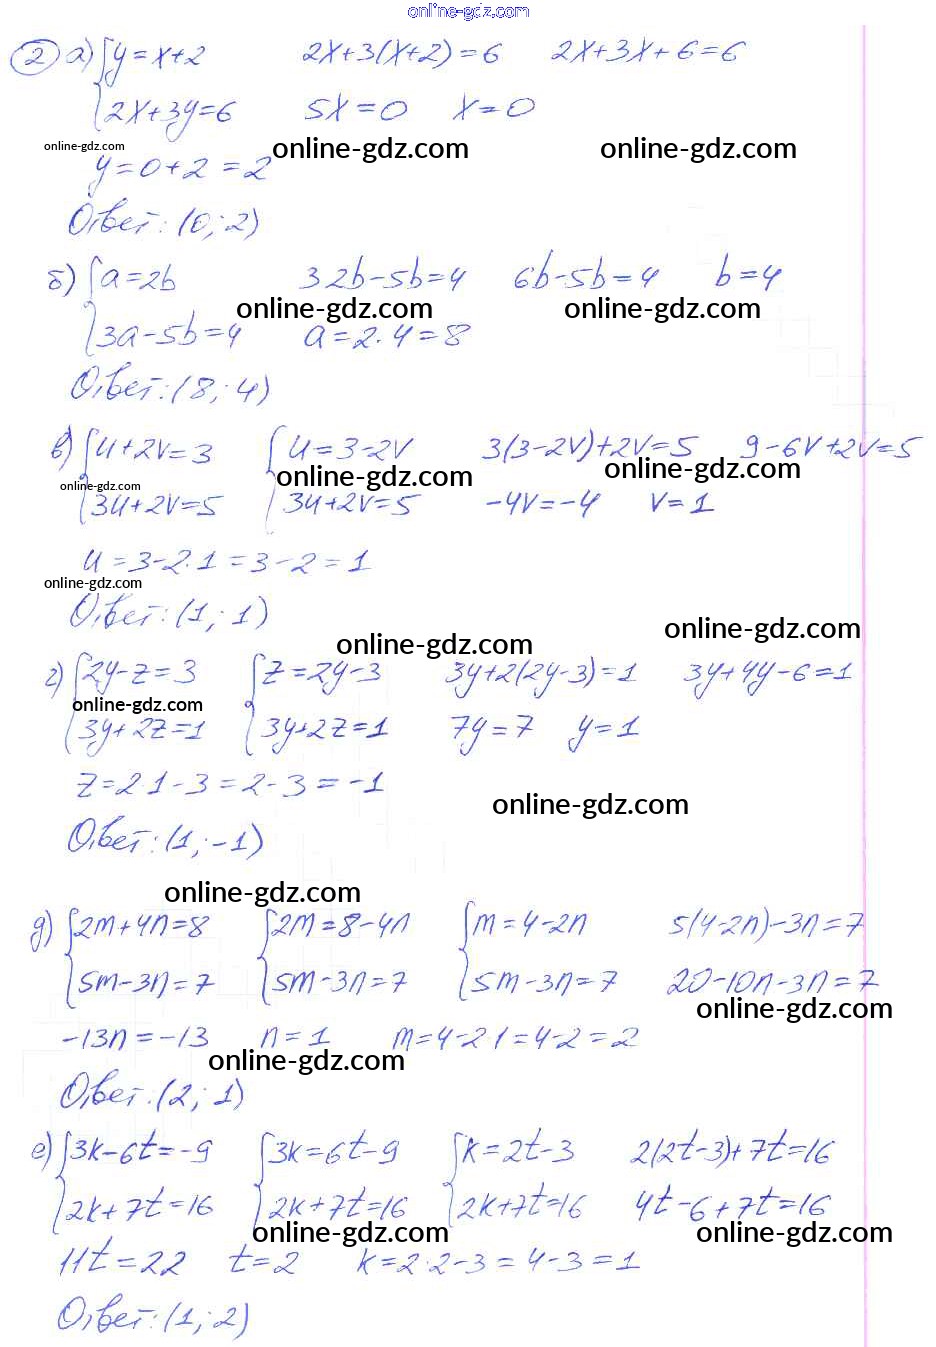 online-gdz.com
② а) { y=x+2   2x+3(x+2)=6   2x+3x+6=6
2x+3y=6   5x=0   x=0
online-gdz.com   online-gdz.com   online-gdz.com
y=0+2=2
Ответ: (0; 2)
б) { a=2b   3·2b-5b=4   6b-5b=4   b=4
online-gdz.com   online-gdz.com
3a-5b=4   a=2·4=8
Ответ: (8; 4)
в) { u+2v=3   { u=3-2v   3(3-2v)+2v=5   9-6v+2v=5
online-gdz.com   online-gdz.com   online-gdz.com
3u+2v=5   3u+2v=5   -4v=-4   v=1
u=3-2·1=3-2=1
online-gdz.com
Ответ: (1; 1)
online-gdz.com   online-gdz.com
г) { 2y-z=3   { z=2y-3   3y+2(2y-3)=1   3y+4y-6=1
online-gdz.com
3y+2z=1   3y+2z=1   7y=7   y=1
z=2·1-3=2-3=-1
online-gdz.com
Ответ: (1; -1)
online-gdz.com
д) { 2m+4n=8   { 2m=8-4n   { m=4-2n   5(4-2n)-3n=7
5m-3n=7   5m-3n=7   5m-3n=7   20-10n-3n=7
online-gdz.com
-13n=-13   n=1   m=4-2·1=4-2=2
online-gdz.com
Ответ: (2; 1)
е) { 3k-6t=-9   { 3k=6t-9   { k=2t-3   2(2t-3)+7t=16
2k+7t=16   2k+7t=16   2k+7t=16   4t-6+7t=16
online-gdz.com   online-gdz.com
11t=22   t=2   k=2·2-3=4-3=1
Ответ: (1; 2)